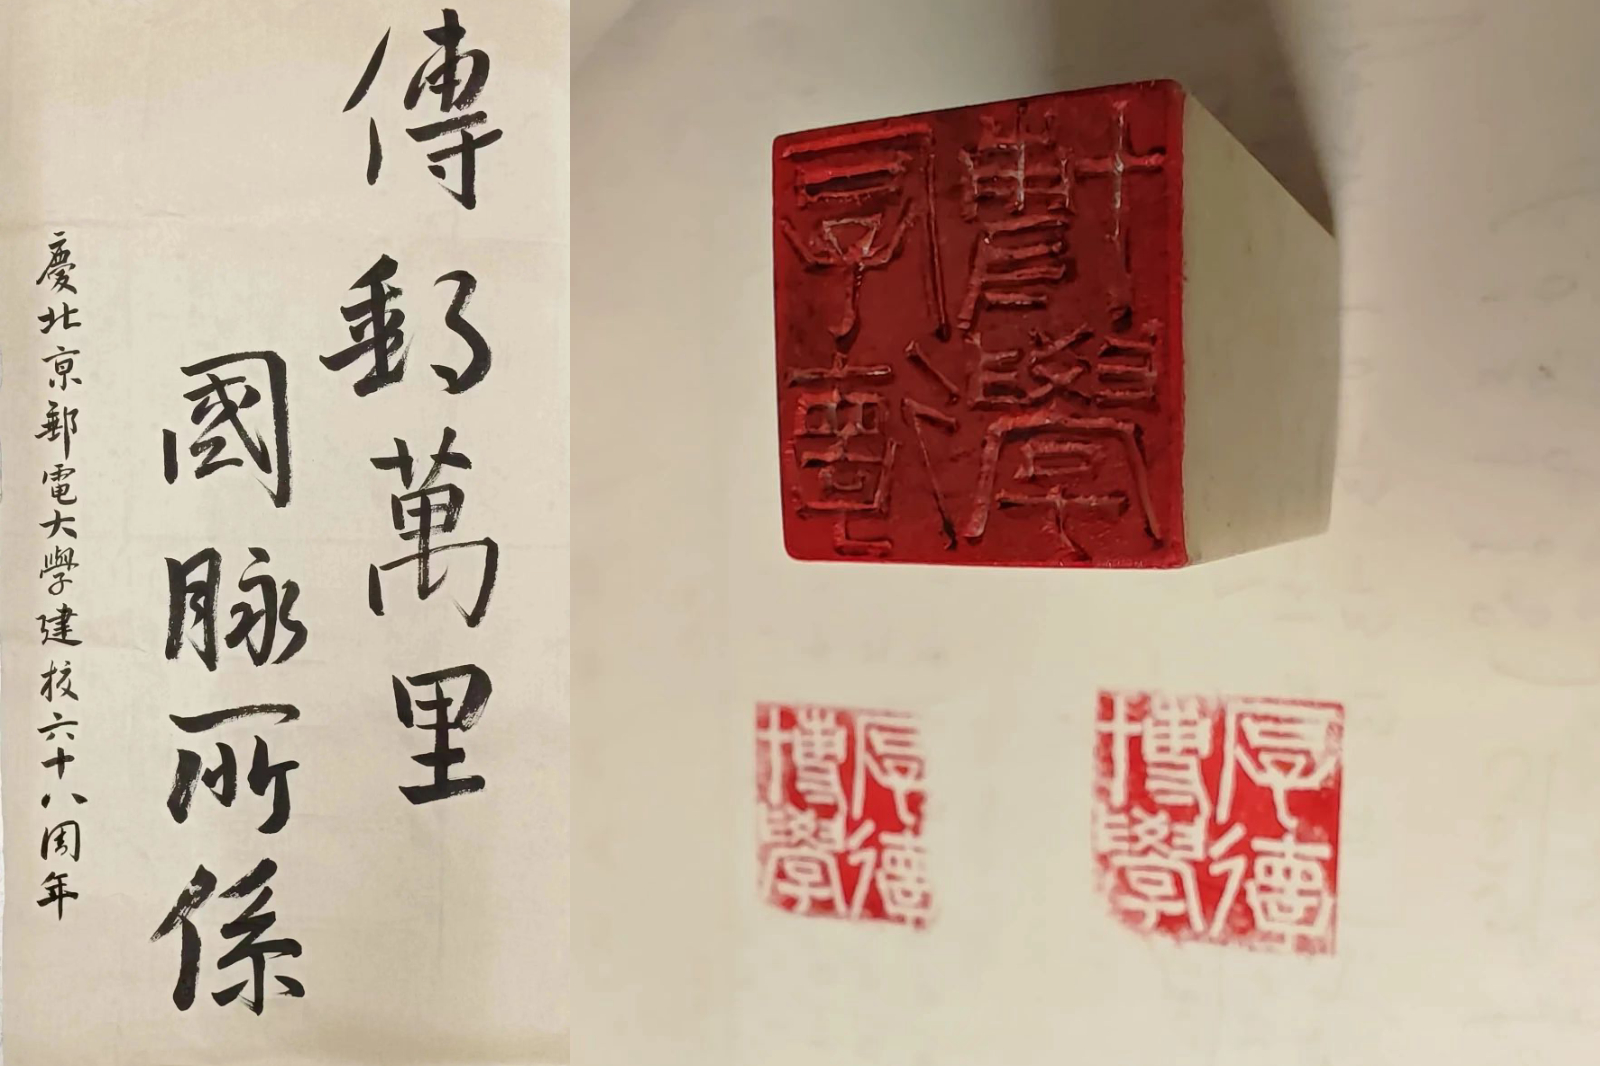 傳郵萬里
國脉所係
慶北京郵電大學建校六十八周年
厚德
博學
厚德
博學
厚德
博學